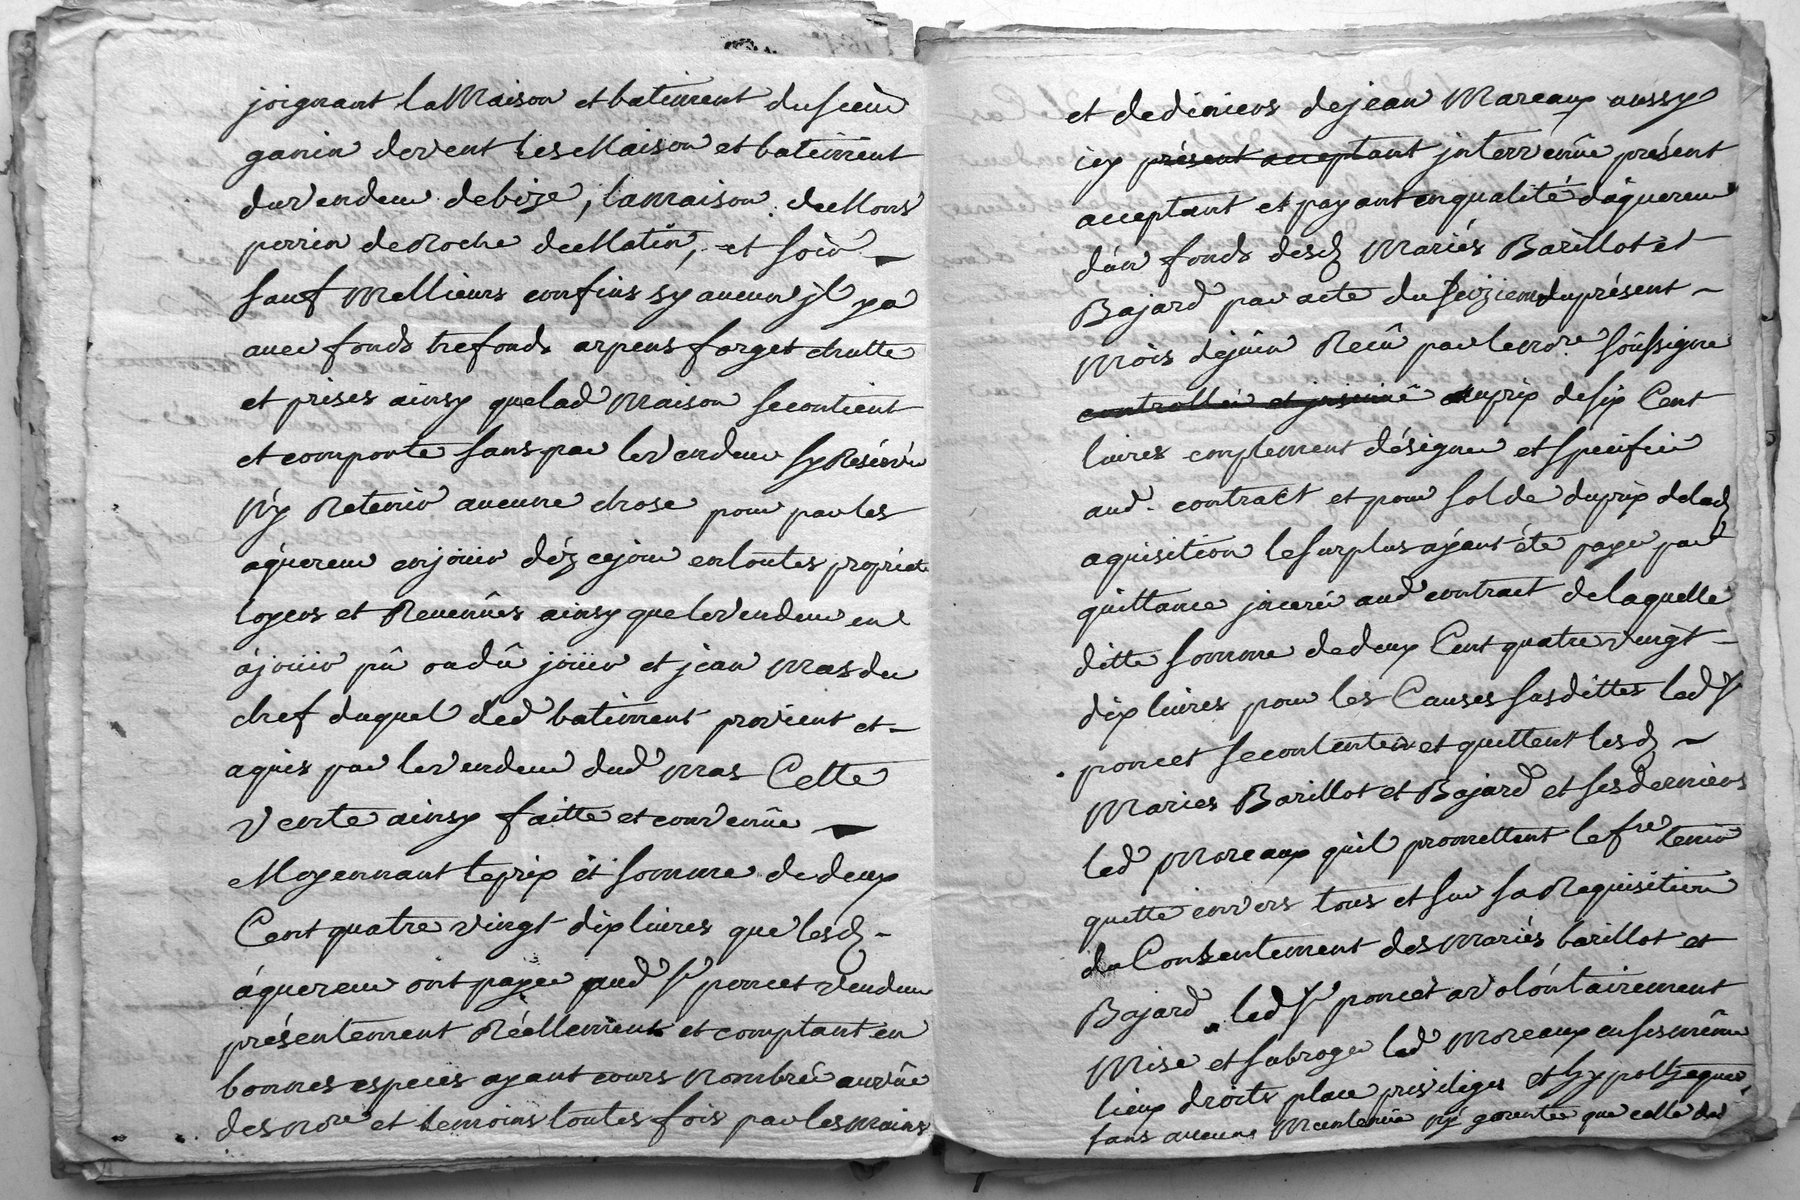 joignant la Maison et batiment du sieur
garin devent les Maison et batiment
du vendeur de bize, la maison de Mons
perrin de Roche de Matin, et soir
sauf Mellieurs confins sy aucun jl ya
avec fonds trefonds arpens forget chutte
et prises ainsy que lad Maison se contient
et comporte sans par le vendeur sy Réservér
n'y Retenir aucune chose pour par les
áquereur en joüir déz ce jour en toutes propriete
loyers et Revenûes ainsy que le vendeur en
ájoüir pû ou dû joüir et jean Mas du
chef duquel led batiment provient et
aquis par le vendeur dud Mas Cette
Vente ainsy faitte et convenüe
Moyennant le prix et somme de deux
Cent quatre vingt dix livres que lesd
áquereur ont payer aud Sr poncet vendeur
présentement Réellement et comptant en
bonnes especes ayant cours Nombreé au vûe
des nore et temoins toutes fois par les mains
et de deniers de jean Mareaux aussy
icy présent acceptant jntervenüe présent
acceptant et payant en qualité d'áquereur
d'un fonds desd Mariés Barillot et
Bajard par acte du seizieme du présent
Mois de juin Recû par le nore soussigne
controllér et jnsinué au prix de six Cent
livres emplement désigner et specifier
aud contract et pour solde du prix de lad
aquisition le surplus ayant été payer par
quittance jnceréé aud contract de laquelle
ditte somme de deux Cent quatre vingt
dix livres pour les Causes susdittes led Sr
poncet se contente et quittent lesd
Mariés Barillot et Bajard et ses derniers
led Moreaux quil promettent le fre tenir
quitte envers tous et sur sa Requisition
du Consentement des Mariés barillot et
Bajard led Sr poncet a volóntairement
Mise et subroger led Moreaux en ses même
lieux droits place priviliges et hypotheques
sans aucune Mentenüe ny garentie que celle du